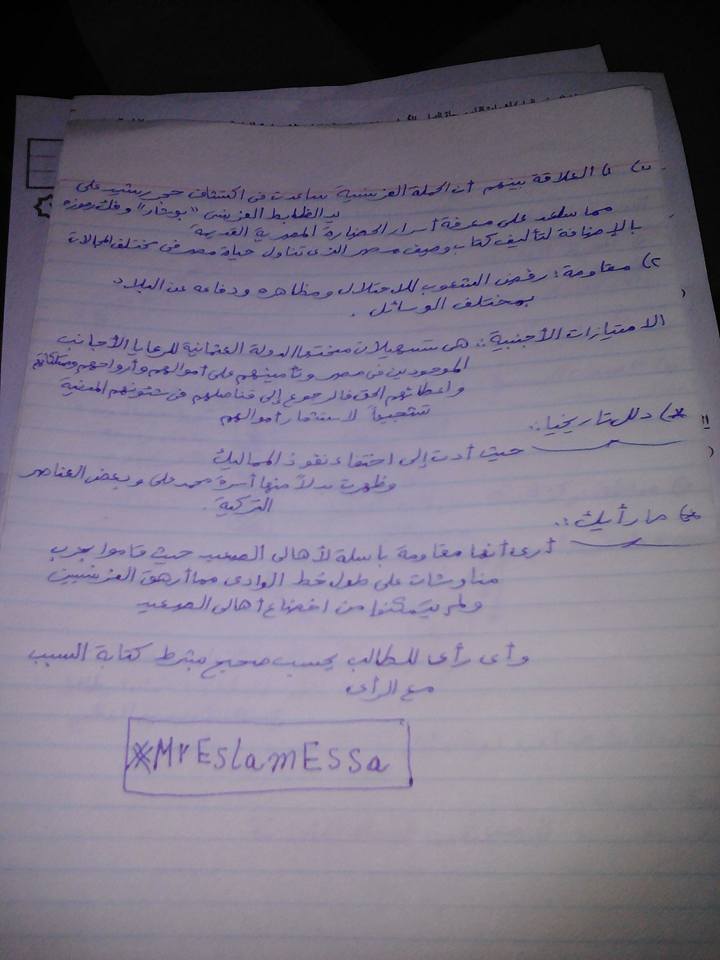 ١) العلاقة بينهم أن الحملة الفرنسية ساعدت فى اكتشاف حجر رشيد على
يد الظابط الفرنسى "بوشار" وفك رموزه
مما ساعد على معرفة أسرار الحضارة المصرية القديمة
بالإضافة لتأليف كتاب وصف مصر الذى تناول حياة مصر فى مختلف المجالات
٢) مقاومة: رفض الشعوب للاحتلال ومظاهره ودفاعه عن البلاد
بمختلف الوسائل.
الامتيازات الأجنبية: هى تسهيلات منحتها الدولة العثمانية للرعايا الأجانب
الموجودين فى مصر وتأمينهم على أموالهم وأرواحهم وممتلكاتهم
واعطائهم الحق فى الرجوع إلى قناصلهم فى شئونهم المدنية
تشجيعاً لاستثمار أموالهم
دلل تاريخيا:
حيث أدت إلى اختفاء نفوذ المماليك
وظهرت بدلاً منها أسرة محمد على وبعض العناصر
التركية.
ما رأيك:
أرى أنها مقاومة باسلة لأهالى الصعيد حيث قاموا بحرب
مناوشات على طول خط الوادى مما أرهق الفرنسيين
ولم يتمكنوا من اخضاع أهالى الصعيد
وأى رأى للطالب يحسب صحيح بشرط كتابة السبب
مع الرأى
*MrEslamEssa